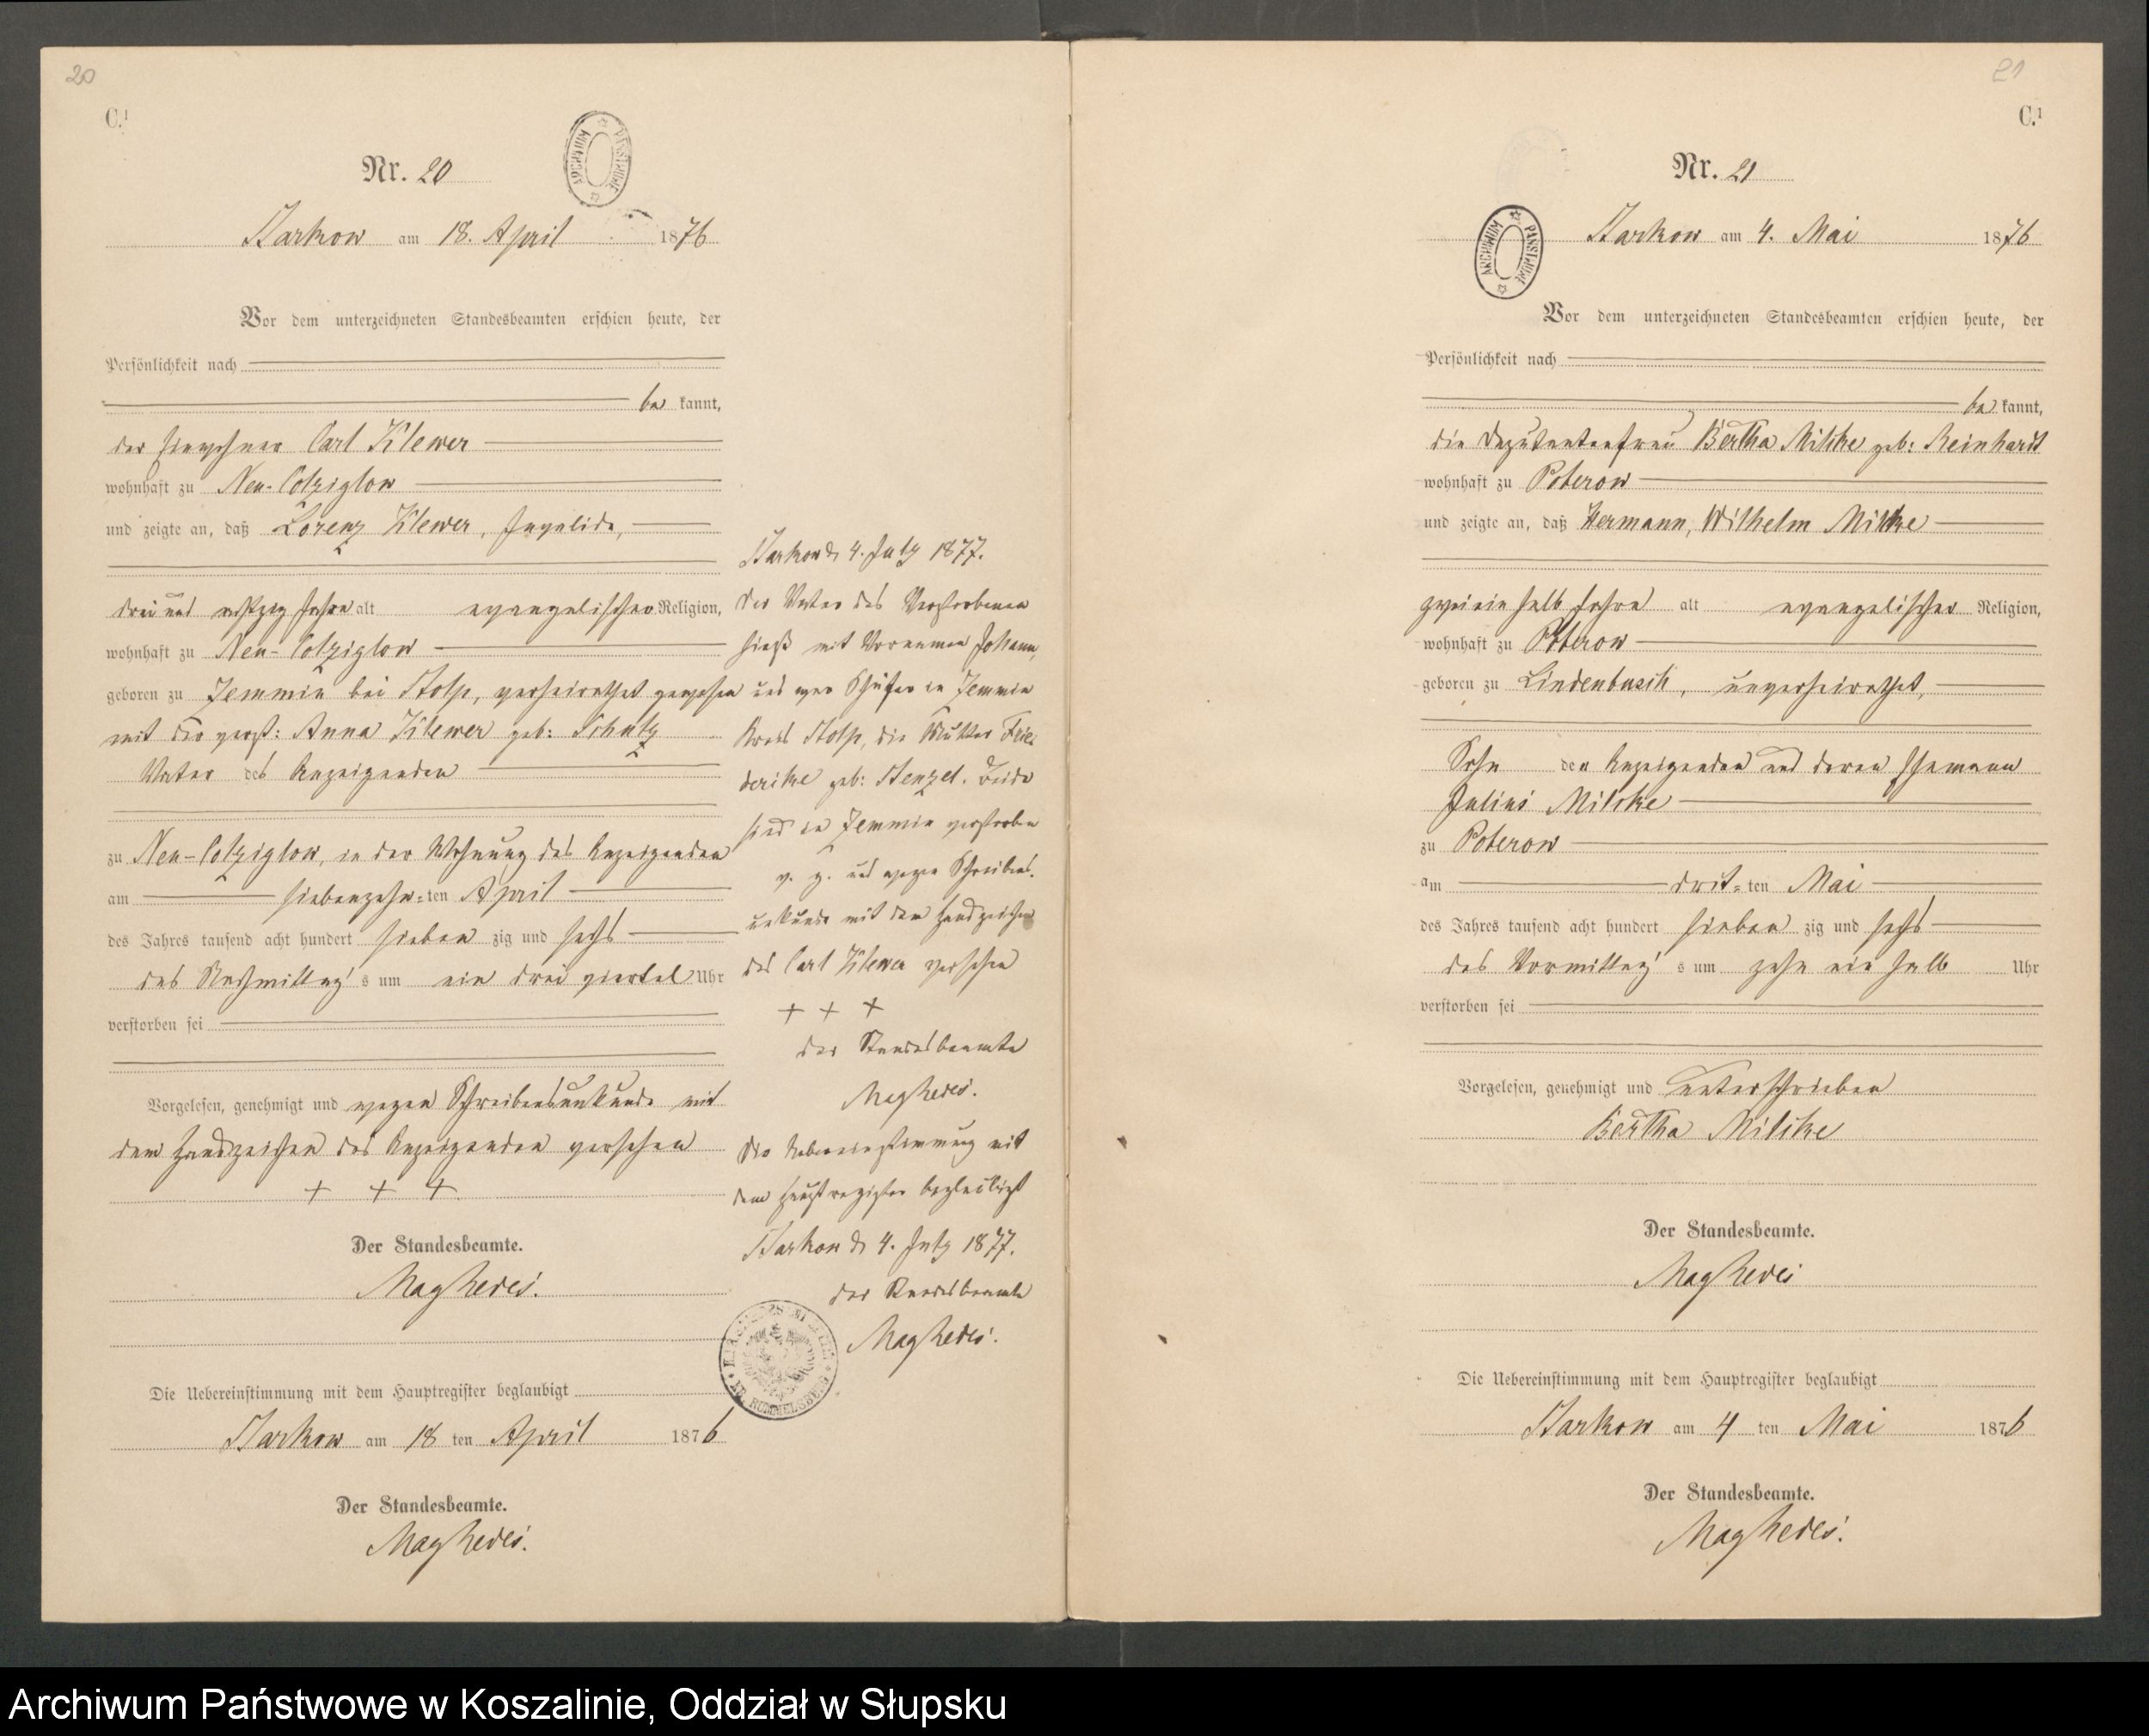 20
C.¹
Nr. 20
ARCHIWUM PAŃSTWOWE
Starkow am 18. April 1876
Vor dem unterzeichneten Standesbeamten erschien heute, der
Persönlichkeit nach
be kannt,
der Einwohner Carl Klewer
wohnhaft zu Neu-Colziglow
und zeigte an, daß Lorenz Klewer, Invalide,
drei und achtzig Jahre alt evangelischer Religion,
wohnhaft zu Neu-Colziglow
geboren zu Jemmin bei Stolp, verheirathet gewesen
mit der verst: Anna Klewer geb: Schulz
Vater des Anzeigenden
zu Neu-Colziglow, in der Wohnung des Anzeigenden
am siebenzehn-ten April
des Jahres tausend acht hundert sieben zig und sechs
des Nachmittag's um ein drei viertel Uhr
verstorben sei
Vorgelesen, genehmigt und wegen Schreibensunkunde mit
dem Handzeichen des Anzeigenden versehen
+ + +
Der Standesbeamte.
Die Uebereinstimmung mit dem Hauptregister beglaubigt
Starkow am 18 ten April 1876
Der Standesbeamte.
Starkow d. 4. July 1877.
Der Vater des Verstorbenen
hieß mit Vornamen Johann,
und war Schäfer in Jemmin
Kreis Stolp, die Mutter Frie-
derike geb: Stenzel. Beide
sind in Jemmin verstorben
v. g. und wegen Schreibens-
unkunde mit dem Handzeichen
des Carl Klewer versehen
+ + +
der Standesbeamte
Die Uebereinstimmung mit
dem Hauptregister beglaubigt
Starkow d. 4. July 1877.
der Standesbeamte
21
C.¹
Nr. 21
ARCHIWUM PAŃSTWOWE
Starkow am 4. Mai 1876
Vor dem unterzeichneten Standesbeamten erschien heute, der
Persönlichkeit nach
be kannt,
die Deputantenfrau Bertha Milcke geb: Reinhardt
wohnhaft zu Poberow
und zeigte an, daß Hermann, Wilhelm Milcke
zwei ein halb Jahre alt evangelischer Religion,
wohnhaft zu Poberow
geboren zu Lindenbusch, unverheirathet,
Sohn der Anzeigenden und deren Ehemann
Julius Milcke
zu Poberow
am drit-ten Mai
des Jahres tausend acht hundert sieben zig und sechs
des Vormittag's um zehn ein halb Uhr
verstorben sei
Vorgelesen, genehmigt und unterschrieben
Bertha Milcke
Der Standesbeamte.
Die Uebereinstimmung mit dem Hauptregister beglaubigt
Starkow am 4 ten Mai 1876
Der Standesbeamte.
Archiwum Państwowe w Koszalinie, Oddział w Słupsku